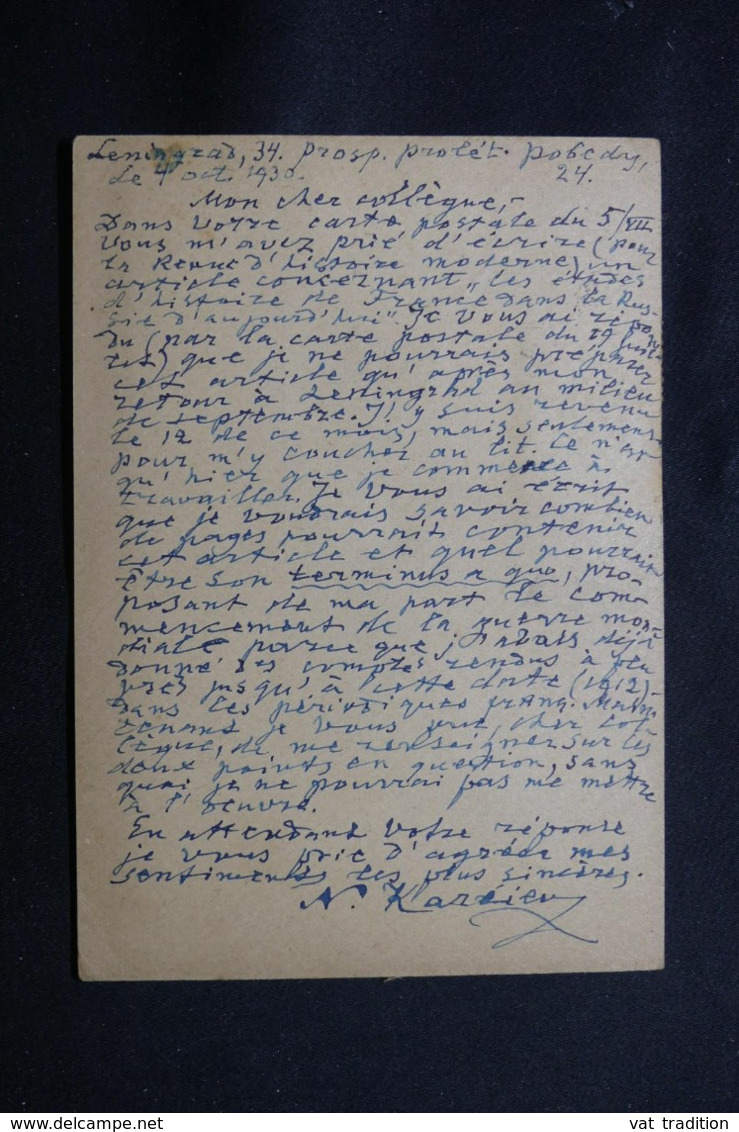 Leningrad, 34. prosp. prolét. pobedy,
24.
Le 4 oct. 1930.
Mon cher collègue,
Dans votre carte postale du 5/VII
vous m'avez prié d'écrire (pour
la Revue d'histoire moderne) un
article concernant „les études
d'histoire de France dans la Rus-
sie d'aujourd'hui". Je vous ai répon-
du (par la carte postale du 19 juil-
let) que je ne pourrais préparer
cet article qu'après mon
retour à Leningrad au milieu
de septembre. J'y suis revenu
le 12 de ce mois, mais seulement
pour m'y coucher au lit. Ce n'est
qu'hier que je commence à
travailler. Je vous ai écrit
que je voudrais savoir combien
de pages pourrait contenir
cet article et quel pourrait
être son terminus a quo, pro-
posant de ma part le com-
mencement de la guerre mon-
diale parce que j'avais déjà
donné des comptes rendus à
jusqu'à cette date (1912)
dans les périodiques franç. Main-
tenant je vous prie, cher col-
lègue, de me renseigner sur les
deux points en question, sans
quoi je ne pourrai pas me mettre
à l'oeuvre.
En attendant votre réponse
je vous prie d'agréer mes
sentiments les plus sincères.
N. Karéiev
vat tradition
delcampe.net